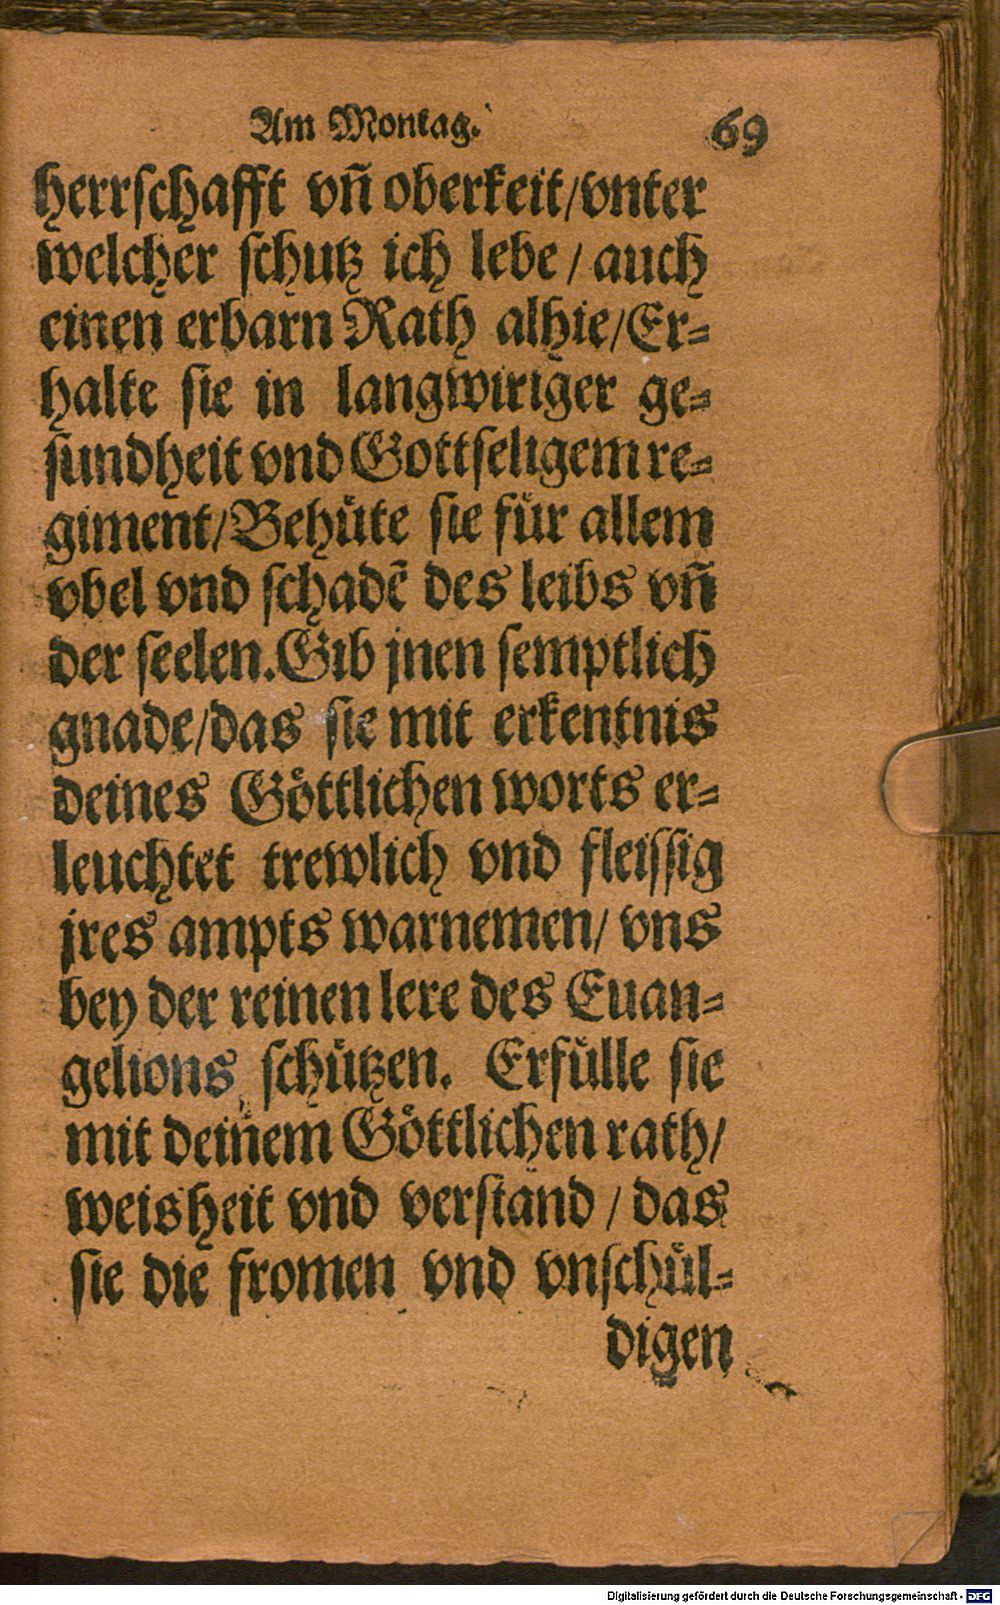 Am Montag. 69
herrschafft vñ oberkeit/vnter
welcher schutz ich lebe / auch
einen erbarn Rath alhie/Er=
halte sie in langwiriger ge=
sundheit vnd Gottseligem re=
giment/Behuͤte sie fuͤr allem
vbel vnd schadẽ des leibs vñ
der seelen. Gib jnen semptlich
gnade/das sie mit erkentnis
deines Goͤttlichen worts er=
leuchtet trewlich vnd fleissig
jres ampts warnemen/ vns
bey der reinen lere des Euan=
gelions schuͤtzen. Erfuͤlle sie
mit deinem Goͤttlichen rath/
weisheit vnd verstand / das
sie die fromen vnd vnschuͤl=
digen
Digitalisierung gefördert durch die Deutsche Forschungsgemeinschaft - DFG